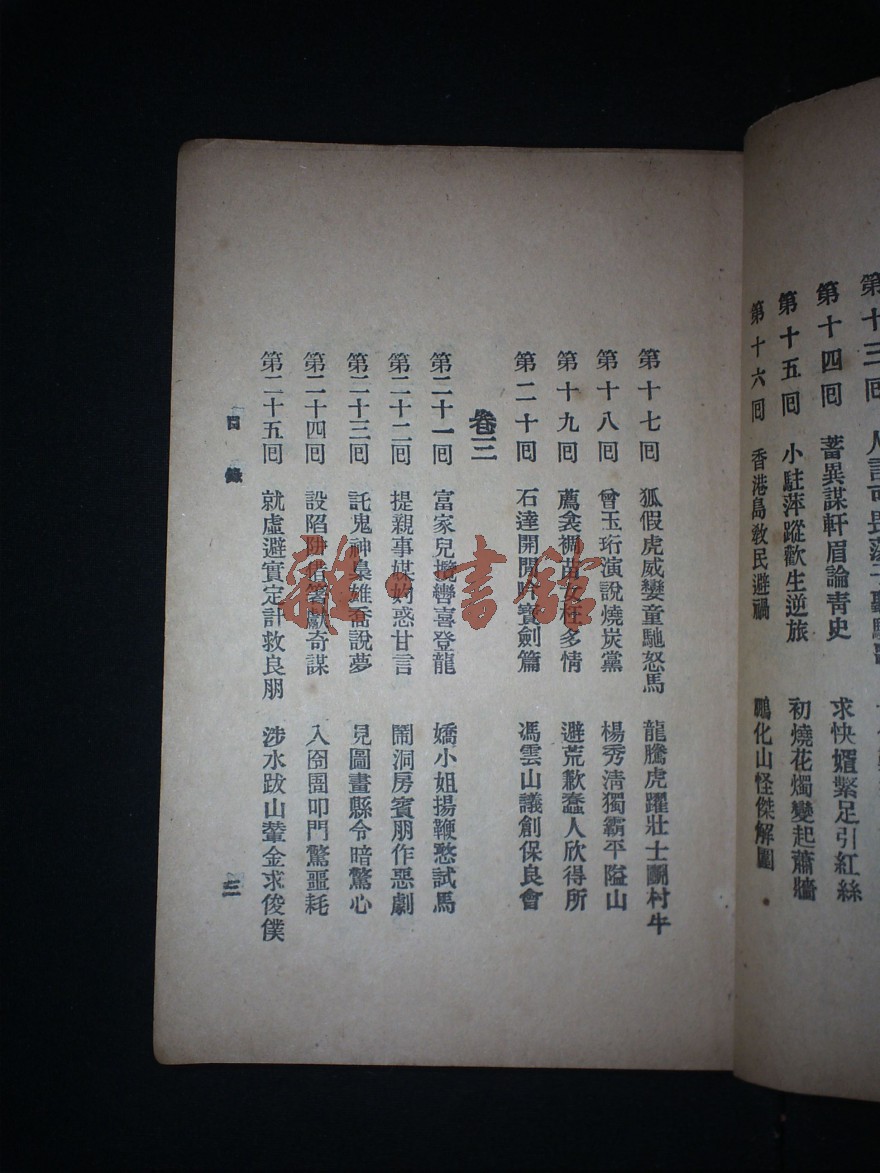 第十三回
第十四回 蓄異謀軒眉論靑史 求快婿繫足引紅絲
第十五回 小駐萍蹤歡生逆旅 初燒花燭變起蕭牆
第十六回 香港島敎民避禍 鵬化山怪傑解圍
第十七回 狐假虎威孌童馳怒馬 龍騰虎躍壯士鬭村牛
第十八回 曾玉珩演說燒炭黨 楊秀淸獨霸平隘山
第十九回 薦衾裯苗女枉多情 避荒歉蠢人欣得所
第二十回 石達開閒吟寶劍篇 馮雲山議創保良會
卷三
第二十一回 富家兒攬轡喜登龍 嬌小姐揚鞭憨試馬
第二十二回 提親事媒妁惑甘言 鬧洞房賓朋作惡劇
第二十三回 託鬼神梟雄喬說夢 見圖畫縣令暗驚心
第二十四回 設陷阱借箸獻奇謀 入囹圄叩門驚噩耗
第二十五回 就虛避實定計救良朋 涉水跋山輦金求俊僕
目錄 三
雜·書館